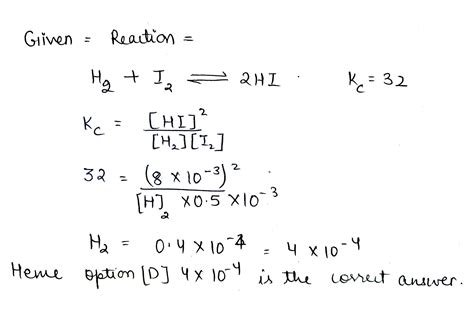 Given = Reaction =
H₂ + I₂ ⇌ 2HI . K_c = 32
K_c = [HI]² / [H₂][I₂]
32 = (8 × 10⁻³)² / [H]₂ × 0.5 × 10⁻³
H₂ = 0.4 × 10⁻³ = 4 × 10⁻⁴
Hence option [D] 4 × 10⁻⁴ is the correct answer.